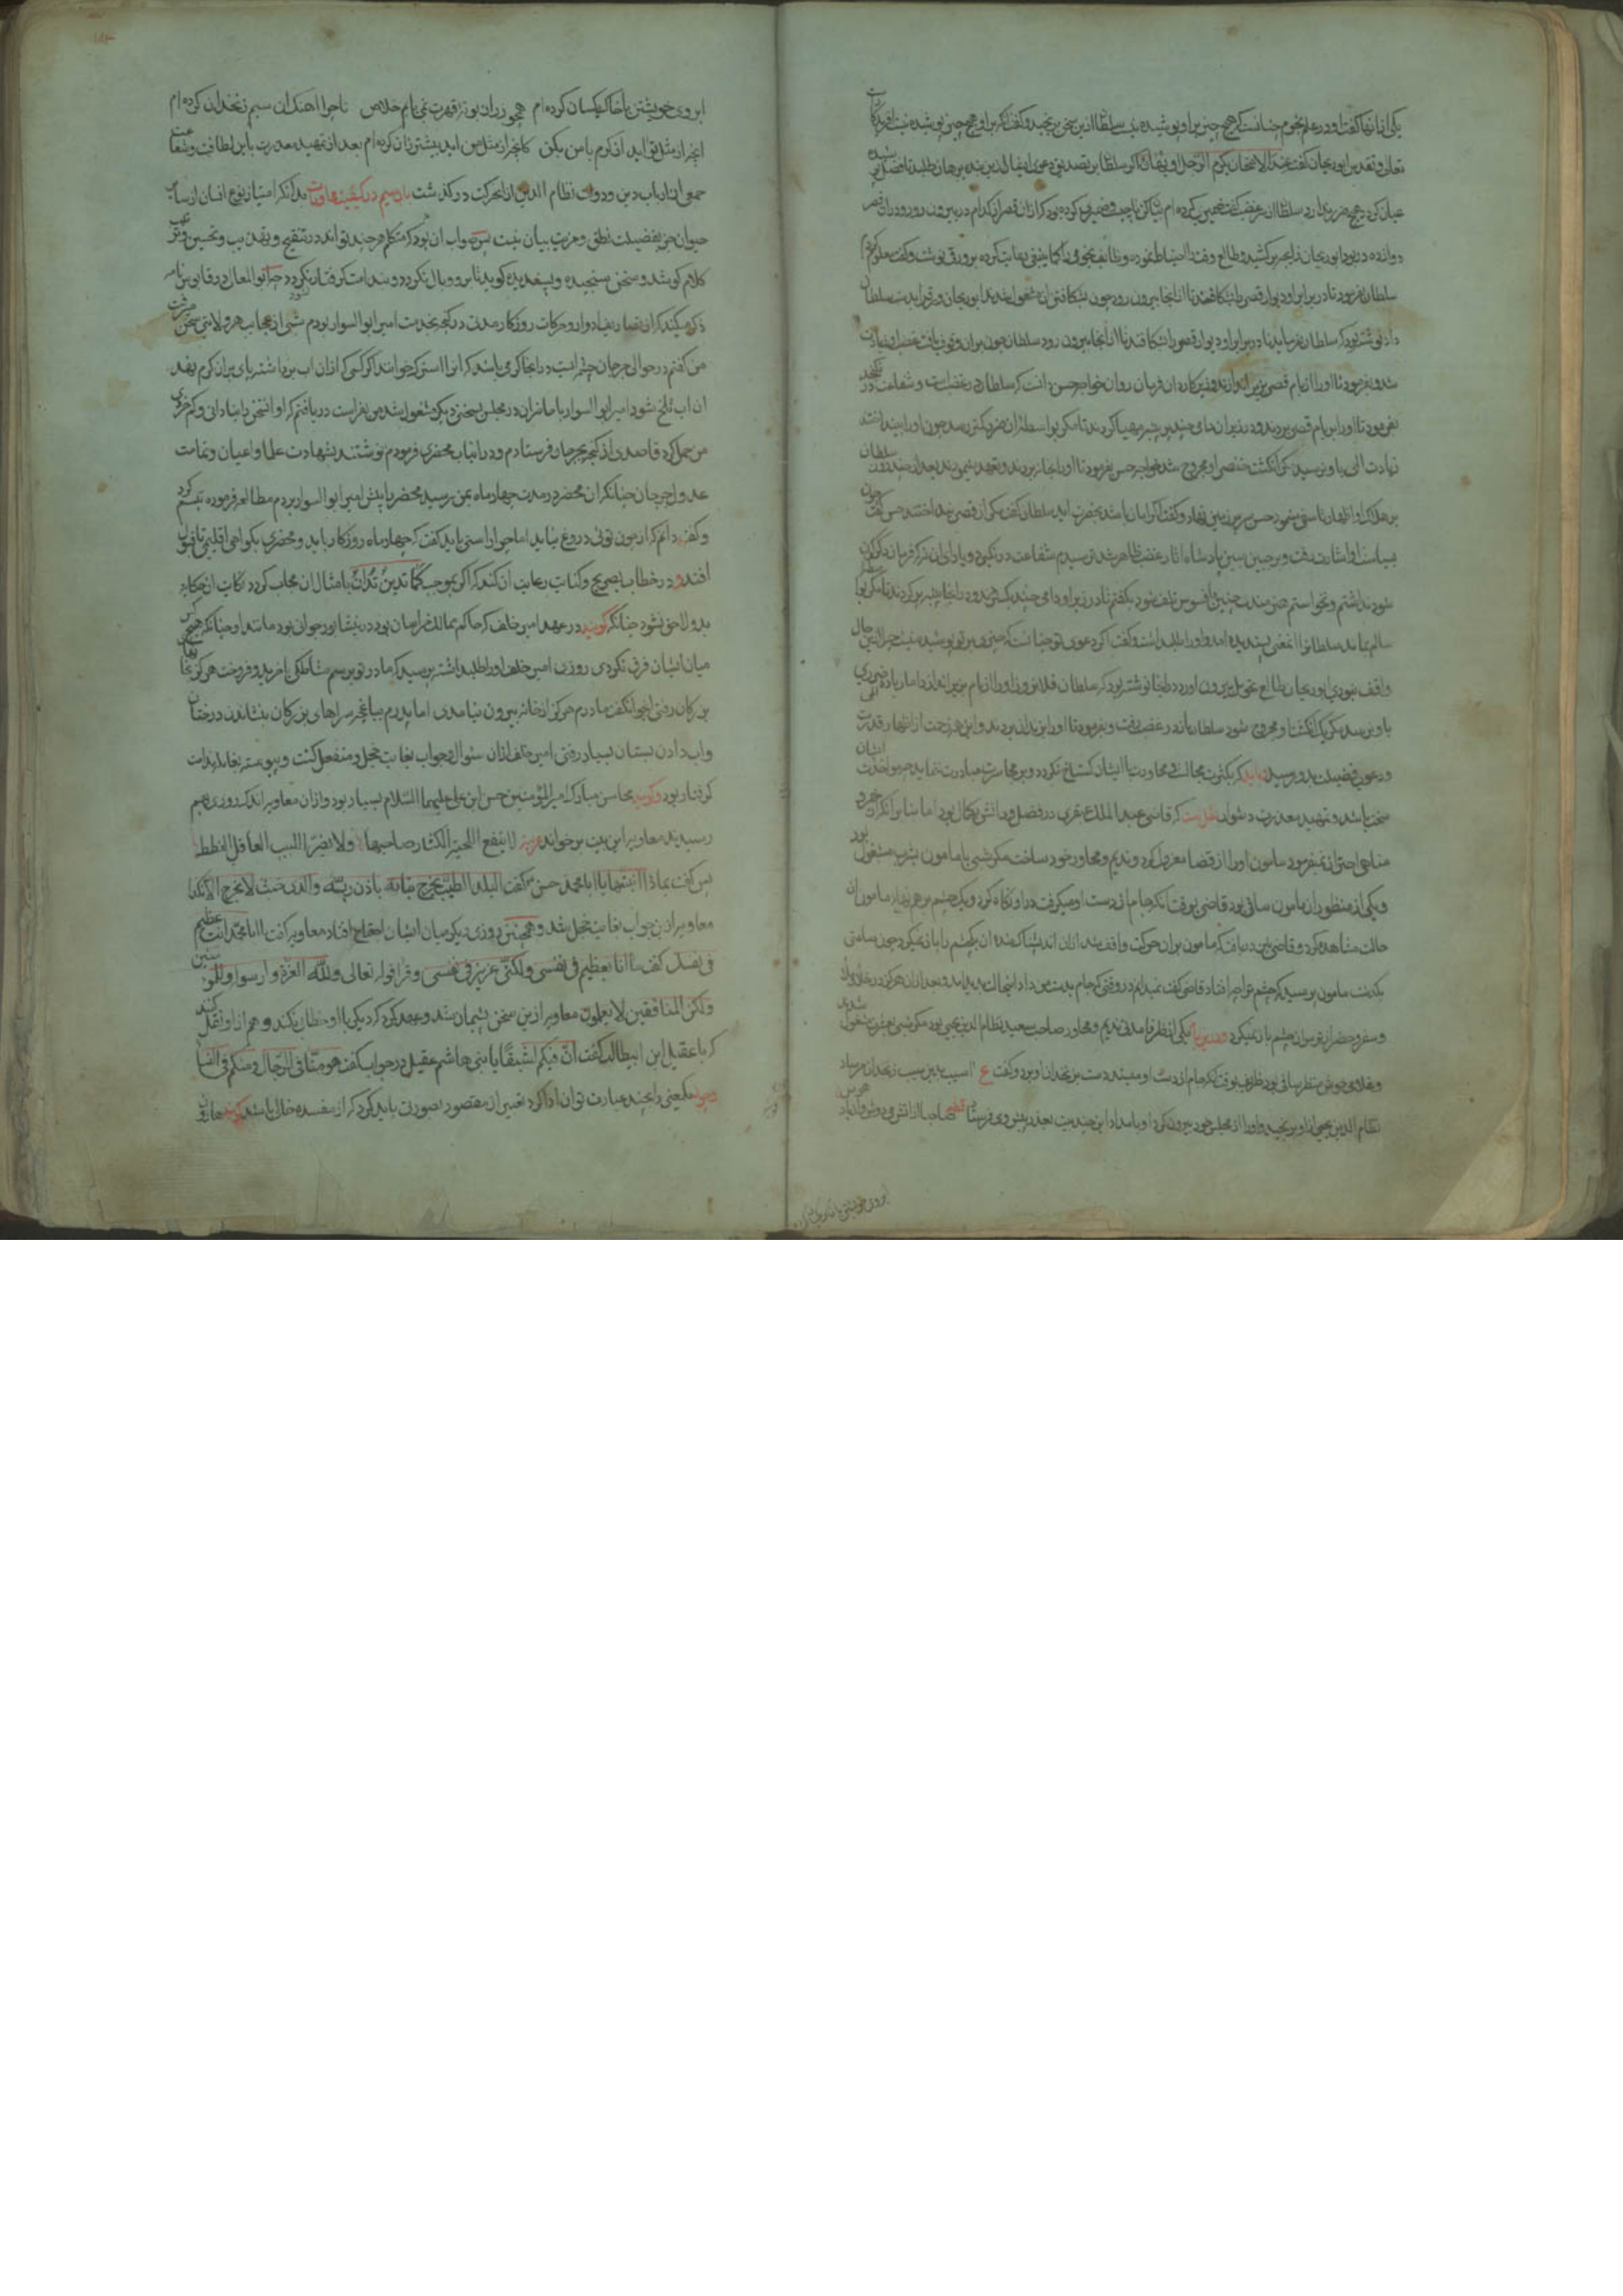 یکی از انها گفت او در علم نجوم چنانست که هیچ چیز بر او پوشیده نیست سلطان ازین سخن برنجید و گفت انکه بر او هیچ چیز پوشیده نیست افریدگار
تعالی و تقدس ابوریحان گفت عند الامتحان یکرم الرجل او یهان اگر سلطان بر تصدیق دعوی ازین بنده برهان طلبد تا فضل بنده
عیان گردد هیچ ضرر ندارد سلطان از سر غضب گفت ضمیری کرده ام بیان کن تا چیست و ضمیری کرده بود که ازان قصر از کدام در بیرون رود و دران قصر
دوازده در بود ابوریحان برکشید و طالع وقت احتیاط نموده و رعایت کرده بر ورق نوشت و گفت معلوم کردم
سلطان بفرمود تا در برابر او دیوار قصر را بشکافتند تا از انجا بیرون رود چون بشکافتن ان مشغول شدند ابوریحان ورق را بدست سلطان
داد نوشته بود که سلطان بفرماید تا در برابر او دیوار قصر را بشکافند تا از انجا بیرون رود سلطان چون بران وقوف یافت غضب او زیادت
شد و بفرمود تا او را از بام قصر بزیر اندازند وزیر کاردان فرمان روان خواجه حسن دانست که سلطان در غضبست و شفاعت در نگنجد
بفرمود تا او را بر بام قصر بردند و در زیر ان دامی چند پر پنبه مهیا کردند تا مگر بواسطه ان ضرر کمتر رسد چون او را بینداختند
زیادت المی باو نرسید مگر انگشت خنصر او مجروح شد خواجه حسن بفرمود تا او را بخانه بردند و تعهد می نمودند بعد از چند روز سلطان
بر هلاک او اظهار تاسف نمود حسن سر بر زمین نهاد و گفت اگر امان باشد بحضرت اید سلطان گفت مگر از قصر نینداختند حسن گفت چون
بسیاست او اشارت رفت و بر جبین مبین پادشاه اثار غضب ظاهر شد ترسیدم شفاعت در نگیرد و یارای ان نه که فرمان دگرگون
شود نداشتم و نخواستم هنرمندی چنین بافسوس تلف شود بگفتم تا در زیر او دامی چند بگستردند و در انجا پنبه پر کردند تا مگر او
سالم بماند سلطان را این معنی پسندیده امد و او را طلب داشت و گفت اگر دعوی تو چنانست که چیزی بر تو پوشیده نیست چرا ازین حال
واقف نبودی ابوریحان طالع تحویل بیرون اورد در انجا نوشته بود که سلطان فلان روز او را از بام بزیر اندازد اما زیاده ضرری
باو نرسد مگر یک انگشت او مجروح شود سلطان باز در غضب رفت و بفرمود تا او را بزندان بردند و این همه زحمت از اظهار قدرت
و دعوی فضیلت بدو رسید باید که بکثرت مجالست و محاورت با ایشان گستاخ نگردد و بر مجاسرت مبادرت ننماید
سخت باشد و تمهید معذرت دشوار نقلست که قاضی عبد الملک در فضل و دانش بکمال بود اما بنابر انکه از خرد
مناهی احتراز نمیفرمود مامون او را از قضا معزول کرد و ندیم و محاور خود ساخت مگر شبی با مامون بشرب مشغول بود
و یکی از منظوران مامون ساقی بود قاضی بوقت انکه جام از دست او میگرفت در او نگاه کرد و یک چشم بر هم نهاد مامون ان
حالت مشاهده کرد و قاضی نیز دریافت که مامون بران حرکت واقف شد ازان اندیشناک شده ان یک چشم را باز نمیکرد چون ساعتی
بگذشت مامون پرسید که چشم ترا چه افتاد قاضی گفت نمیدانم در وقتی که جام بدست من داد این حال پدید امد و بعد ازان هرگز در خلا و ملا
و سفر و حضر از ترس ان چشم باز نمیکرد یکی از ظرفا مدتی ندیم و محاور صاحب سعید نظام الدین یحیی بود مگر شبی بعشرت مشغول شدند
و غلامی خوش منظر ساقی بود ظریف بوقت انکه جام از دست او میستد دست بر زنخدان او برد و گفت ع اسیب بدین سیب زنخدان مرساد
نظام الدین یحیی ازو برنجید و او را از مجلس خود بیرون کرد او بامداد این چند بیت بعذر پیش وی فرستاد قطعه صاحبا از اتش می دوش
ابروی خویشتن با خاک یکسان کرده ام
ابروی خویشتن با خاک یکسان کرده ام همچو زر از بوته قهرت نمی یابم خلاص تا چرا اهنک ان سیم زنخدان کرده ام
انچه از مثل تو اید از کرم با من بکن کانچه از مثل من اید بیشتر زان کرده ام بعد از تمهید معذرت باین لطافت و شفاعت
جمعی از ارباب دین و دولت نظام الدین ازان حرکت در گذشت بدانکه امتیاز نوع انسان از سایر
حیوان جز بفضیلت نطق و مزیت بیان نیست پس صواب ان بود که متکلم هر چند تواند در تنقیح و تهذیب و تحسین و ترتیب
کلام کوشد و سخن سنجیده و پسندیده گوید تا برو وبال نگردد و بندامت گرفتار نگردد در قابوس نامه
ذکر میکند که از تصاریف ادوار و حرکات روزگار مدتی در گنجه بخدمت امیر ابو السوار بودم شبی از عجایب هر ولایتی سخن میرفت
من گفتم در حوالی جرجان چشمه ایست و در انجا کرمی باشد که اگر کسی که ازان اب برداشته پای بران کرم نهد
ان اب تلخ شود امیر ابو السوار با ما نزان در مجلس بسخنی دیگر مشغول شد من بفراست دریافتم که او این سخن را بنادانی و کم خردی
من حمل کرد قاصدی از گنجه بجرجان فرستادم و درانباب محضری فرمودم نوشتند بشهادت علما و اعیان و
عدول جرجان چنانکه ان محضر در مدت چهار ماه بمن رسید محضر را پیش امیر ابو السوار بردم مطالعه فرموده تبسم کرد
و گفت دانم که از چون توئی دروغ نیاید اما چرا راستی باید گفت که چهار ماه روزگار باید و محضری بگواهی اقلیمی تا قبول
افتد و در خطاب بصریح و کنایت رعایت ان کند که اگر بموجب کما تدین تدان بامثال ان مجاب گردد
بدو لاحق نشود چنانکه گویند در عهد امیر خلف که حاکم ممالک خراسان بود در نیشابور جوانی بود مانند او چنانکه هیچ کس
میان ایشان فرق نکردی روزی امیر خلف او را طلب داشته پرسید که مادر تو برسم مشاطگی یا خرید و فروخت هرگز بخانهای
بزرگان رفتی جوان گفت مادرم هرگز از خانه بیرون نیامدی اما پدرم بباغچه سراهای بزرگان بنشاندن درختان
و اب دادن بستان بسیار رفتی امیر خلف ازان سئوال و جواب بغایت خجل و منفعل گشت و پیوسته بغایله ندامت
گرفتار بود و گویند محاسن مبارک امیر المؤمنین حسن ابن علی علیهما السلام بسیار بود و ازان معاویه اندک روزی بهم
رسیدند معاویه این بیت بر خواند لا ینفع اللحیة الکثار صاحبها ولا یضر اللبیب العاقل القطط
پس گفت بماذا انبتها یا ابا محمد حسن ع گفت البلد الطیب یخرج نباته باذن ربه والذی خبث لا یخرج الا نکدا
معاویه ازین جواب بغایت خجل شد و همچنین روزی دیگر میان ایشان اجتماع افتاد معاویه گفت یا ابا محمد انت عظیم
فی نفسک گفت ما انا بعظیم فی نفسی ولکنی عزیز فی نفسی و قرا قوله تعالی ولله العزة ولرسوله وللمؤمنین
ولکن المنافقین لا یعلمون معاویه ازین سخن پشیمان شد و عهد کرد که دیگر با او خطاب نکند
که با عقیل ابن ابیطالب گفت ان فیکم لشبقا یا بنی هاشم عقیل در جواب گفت هو منا فی الرجال و منکم فی النسا
و چون یک معنی را بچند عبارت توان ادا کرد تعبیر از مقصود بصورتی باید کرد که از مفسده خالی باشد گویند هارون